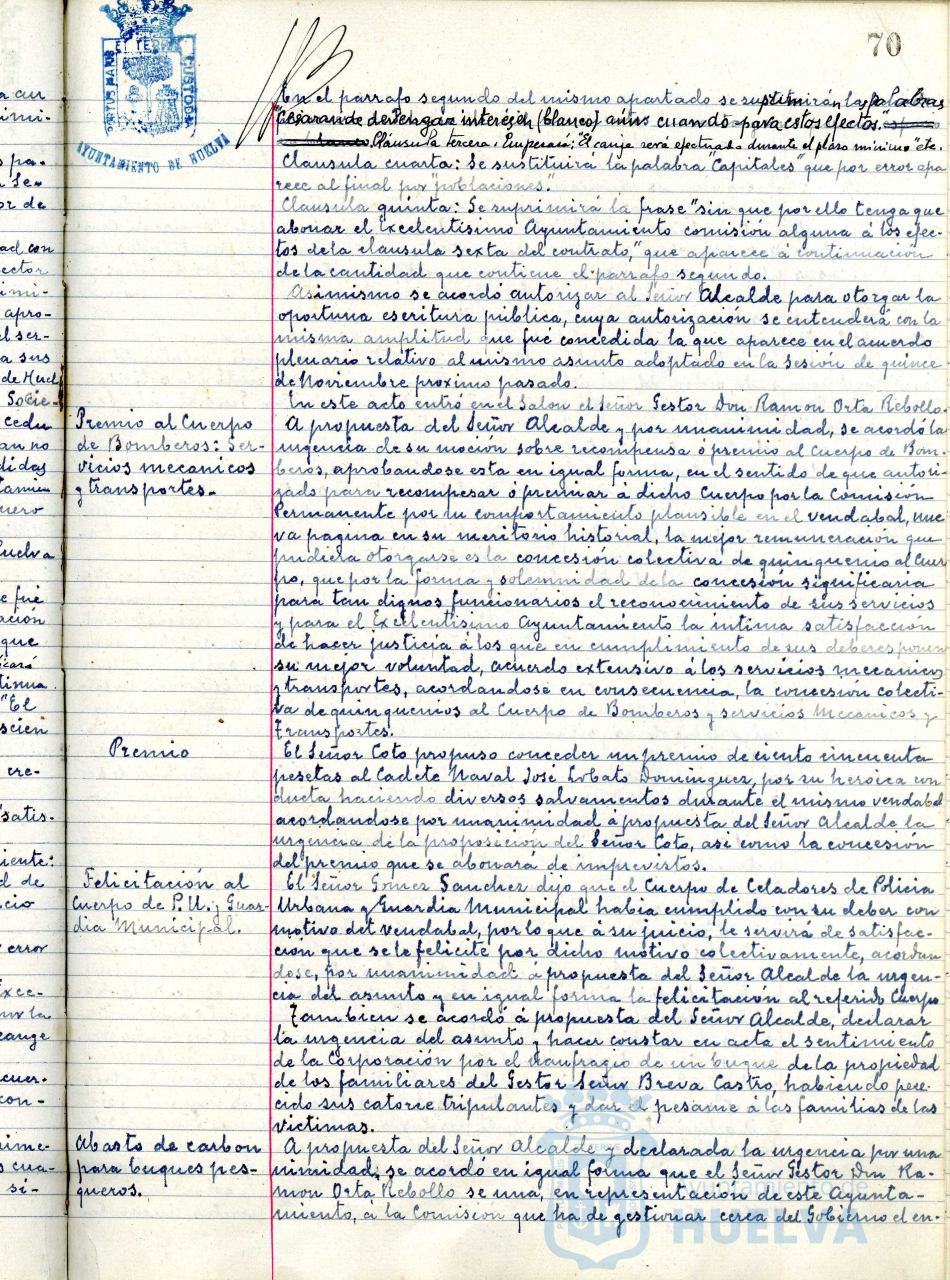 70
PORTUS MARIS ET TERRÆ CUSTODIA
AYUNTAMIENTO DE HUELVA
En el parrafo segundo del mismo apartado se suprimirán las palabras
devengar interes en (blanco) aun cuando para estos efectos."
Clausula tercera: Empezará: "El canje será efectuado durante el plazo minimo etc.
Clausula cuarta: Se sustituirá la palabra "Capitales" que por error apa
rece al final por "poblaciones".
Clausula quinta: Se suprimirá la frase "sin que por ello tenga que
abonar el Excelentisimo Ayuntamiento comisión alguna á los efec-
tos de la clausula sexta del contrato," que aparece á continuación
de la cantidad que contiene el parrafo segundo.
Asimismo se acordó autorizar al Señor Alcalde para otorgar la
oportuna escritura pública, cuya autorización se entenderá con la
misma amplitud que fué concedida la que aparece en el acuerdo
plenario relativo al mismo asunto adoptado en la Sesión de quince
de Noviembre proximo pasado.
En este acto entró en el Salon el Señor Gestor Don Ramon Orta Rebollo.
Premio al Cuerpo
de Bomberos: Ser-
vicios mecanicos
y transportes.-
A propuesta del Señor Alcalde y por unanimidad, se acordó la
urgencia de su moción sobre recompensa ó premio al Cuerpo de Bom-
beros, aprobandose esta en igual forma, en el sentido de que autori-
zado para recompesar ó premiar á dicho Cuerpo por la Comisión
Permanente por su comportamiento plausible en el vendabal, nue
va pagina en su meritorio historial, la mejor remuneración que
pudiera otorgarse es la concesión colectiva de quinquenio al Cuer
po, que por la forma y solemnidad de la concesión significaria
para tan dignos funcionarios el reconocimiento de sus servicios
y para el Excelentisimo Ayuntamiento la intima satisfacción
de hacer justicia á los que en cumplimiento de sus deberes ponen
su mejor voluntad, acuerdo extensivo á los servicios mecanicos
y transportes, acordandose en consecuencia, la concesión colecti-
va de quinquenios al Cuerpo de Bomberos y servicios Mecanicos y
Transportes.
Premio
El Señor Coto propuso conceder un premio de ciento cincuenta
pesetas al Cadete Naval José Lobato Dominguez, por su heroica con
ducta haciendo diversos salvamentos durante el mismo vendabal
acordandose por unanimidad á propuesta del Señor Alcalde la
urgencia de la proposición del Señor Coto, asi como la concesión
del premio que se abonará de imprevistos.
Felicitación al
Cuerpo de P.U. y Guar-
dia Municipal.
El Señor Gomez Sanchez dijo que el Cuerpo de Celadores de Policia
Urbana y Guardia Municipal habia cumplido con su deber con
motivo del vendabal, por lo que á su juicio, le servirá de satisfac-
ción que se le felicite por dicho motivo colectivamente, acordan
dose, por unanimidad á propuesta del Señor Alcalde la urgen-
cia del asunto y en igual forma la felicitación al referido Cuerpo
Tambien se acordó á propuesta del Señor Alcalde, declarar
la urgencia del asunto y hacer constar en acta el sentimiento
de la Corporación por el naufragio de un buque de la propiedad
de los familiares del Gestor Señor Breva Castro, habiendo pere-
cido sus catorce tripulantes y dar el pesame á las familias de las
victimas.
Abasto de carbon
para buques pes-
queros.
A propuesta del Señor Alcalde y declarada la urgencia por una
nimidad, se acordó en igual forma que el Señor Gestor Don Ra-
mon Orta Rebollo se una, en representación de este Ayunta-
miento, á la Comisión que ha de gestionar cerca del Gobierno el en-
Ayuntamiento de
HUELVA